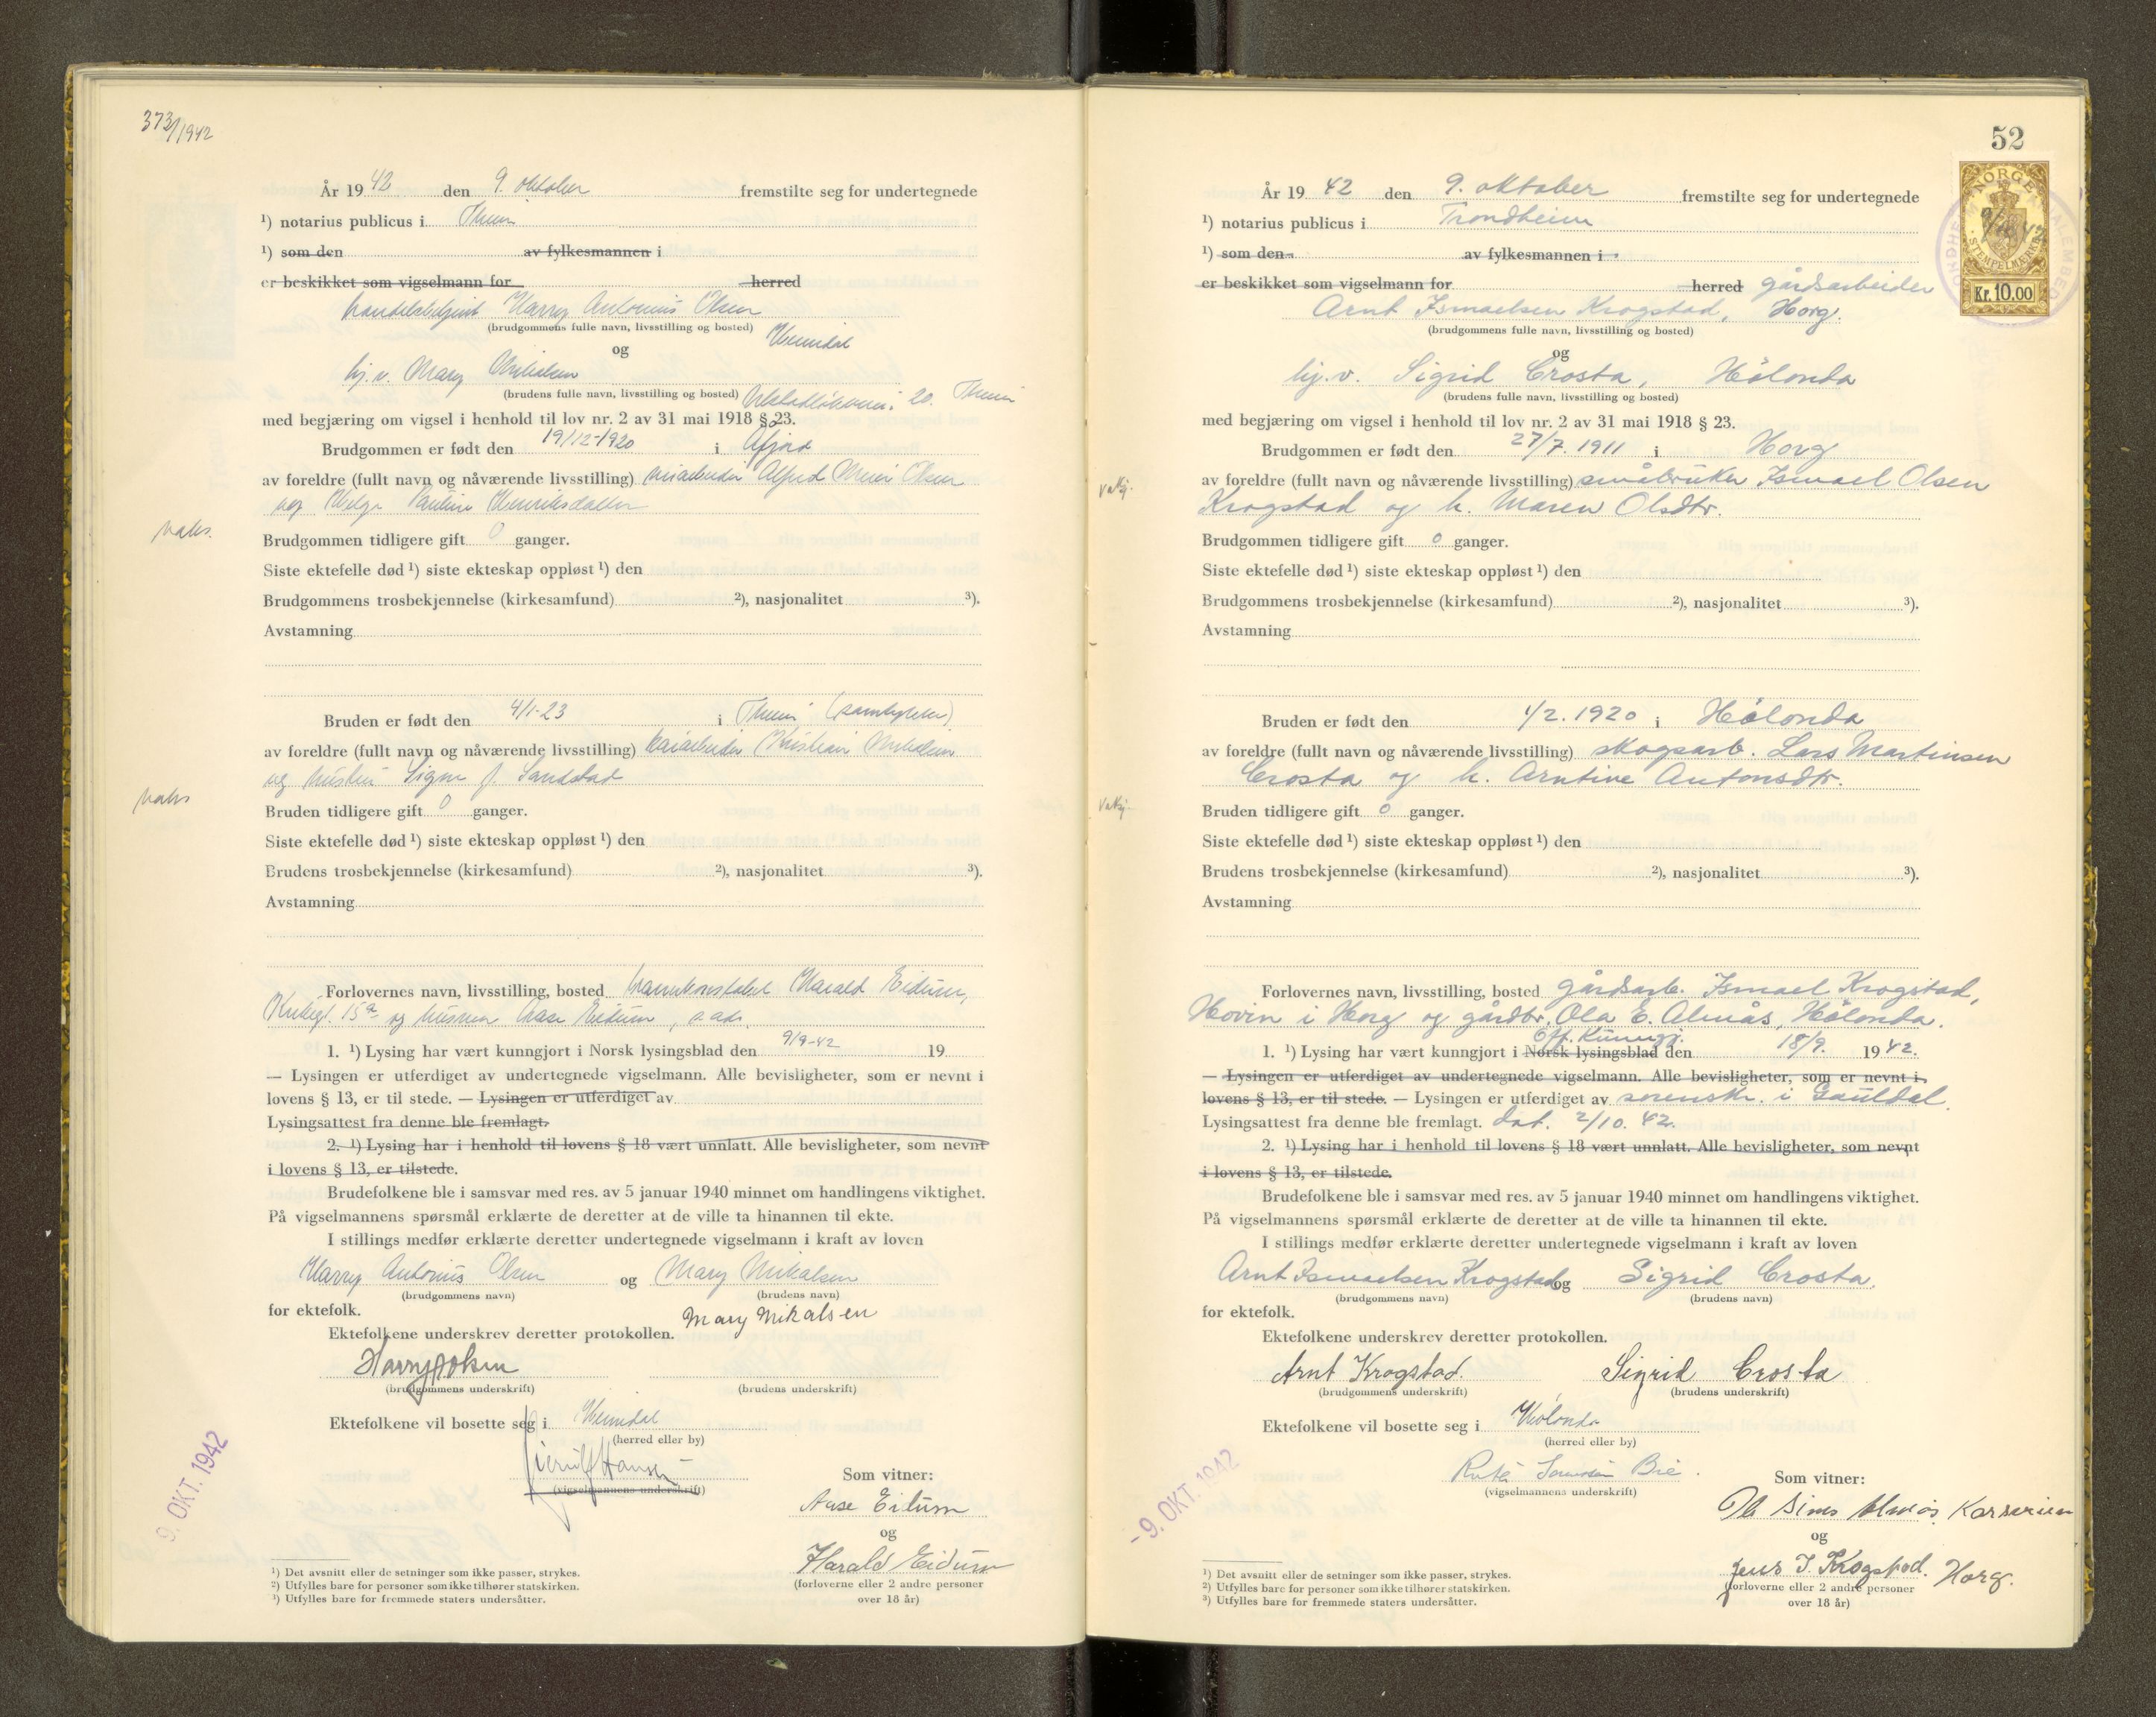 373/1942
År 1942 den 9. oktober fremstilte seg for undertegnede
¹) notarius publicus i Thm
¹) som den av fylkesmannen i
er beskikket som vigselmann for herred
handelsbetjent Harry Antonius Olsen
(brudgommens fulle navn, livsstilling og bosted) Heimdal
og
hj.v. Mary Mikalsen
(brudens fulle navn, livsstilling og bosted) 20. Thm
med begjæring om vigsel i henhold til lov nr. 2 av 31 mai 1918 § 23.
Brudgommen er født den 19/12-1920 i Åfjord
av foreldre (fullt navn og nåværende livsstilling) Alfred Olsen
og Helga Pauline Henriksdatter
vaks.
Brudgommen tidligere gift 0 ganger.
Siste ektefelle død ¹) siste ekteskap oppløst ¹) den
Brudgommens trosbekjennelse (kirkesamfund) ²), nasjonalitet ³).
Avstamning
Bruden er født den 4/1-23 i Thm (samtykke)
av foreldre (fullt navn og nåværende livsstilling) kaiarbeider Kristian Mikalsen
og hustru Signe f. Sandstad
vaks
Bruden tidligere gift 0 ganger.
Siste ektefelle død ¹) siste ekteskap oppløst ¹) den
Brudens trosbekjennelse (kirkesamfund) ²), nasjonalitet ³).
Avstamning
Forlovernes navn, livsstilling, bosted Harald Eidum,
15a og hustru Aase Eidum, s.ads.
1. ¹) Lysing har vært kunngjort i Norsk lysingsblad den 9/9-42 19
— Lysingen er utferdiget av undertegnede vigselmann. Alle bevisligheter, som er nevnt i
lovens § 13, er til stede. — Lysingen er utferdiget av
Lysingsattest fra denne ble fremlagt.
2. ¹) Lysing har i henhold til lovens § 18 vært unnlatt. Alle bevisligheter, som nevnt
i lovens § 13, er tilstede.
Brudefolkene ble i samsvar med res. av 5 januar 1940 minnet om handlingens viktighet.
På vigselmannens spørsmål erklærte de deretter at de ville ta hinannen til ekte.
I stillings medfør erklærte deretter undertegnede vigselmann i kraft av loven
Harry Antonius Olsen og Mary Mikalsen
(brudgommens navn) (brudens navn)
for ektefolk.
Mary Mikalsen
Ektefolkene underskrev deretter protokollen.
Harry A Olsen
(brudgommens underskrift) (brudens underskrift)
Ektefolkene vil bosette seg i Heimdal
(herred eller by)
Hansen
(vigselmannens underskrift)
Som vitner:
Aase Eidum
og
Harald Eidum
(forloverne eller 2 andre personer
over 18 år)
9. OKT. 1942
¹) Det avsnitt eller de setninger som ikke passer, strykes.
²) Utfylles bare for personer som ikke tilhører statskirken.
³) Utfylles bare for fremmede staters undersåtter.
52
NORGE
STEMPELMERKE
Kr. 10.00
År 1942 den 9. oktober fremstilte seg for undertegnede
¹) notarius publicus i Trondheim
¹) som den av fylkesmannen i
er beskikket som vigselmann for herred gårdsarbeider
Arnt Ismaelsen Krogstad, Horg.
(brudgommens fulle navn, livsstilling og bosted)
og
hj.v. Sigrid Crosta, Hölonda
(brudens fulle navn, livsstilling og bosted)
med begjæring om vigsel i henhold til lov nr. 2 av 31 mai 1918 § 23.
Brudgommen er født den 27/7. 1911 i Horg
av foreldre (fullt navn og nåværende livsstilling) småbruker Ismael Olsen
Krogstad og h. Maren Olsdtr.
Brudgommen tidligere gift 0 ganger.
Siste ektefelle død ¹) siste ekteskap oppløst ¹) den
Brudgommens trosbekjennelse (kirkesamfund) ²), nasjonalitet ³).
Avstamning
Bruden er født den 1/2. 1920 i Hölonda
av foreldre (fullt navn og nåværende livsstilling) skogsarb. Lars Martinsen
Crosta og h. Arntine Antonsdtr.
Bruden tidligere gift 0 ganger.
Siste ektefelle død ¹) siste ekteskap oppløst ¹) den
Brudens trosbekjennelse (kirkesamfund) ²), nasjonalitet ³).
Avstamning
Forlovernes navn, livsstilling, bosted gårdsarb. Ismael Krogstad,
Hovin i Horg og gårdbr. Ola E. Almås, Hölonda.
Off. Kunngj.
1. ¹) Lysing har vært kunngjort i Norsk lysingsblad den 18/9. 1942.
— Lysingen er utferdiget av undertegnede vigselmann. Alle bevisligheter, som er nevnt i
lovens § 13, er til stede. — Lysingen er utferdiget av sorenskr. i Gauldal.
Lysingsattest fra denne ble fremlagt. dat. 2/10. 42.
2. ¹) Lysing har i henhold til lovens § 18 vært unnlatt. Alle bevisligheter, som nevnt
i lovens § 13, er tilstede.
Brudefolkene ble i samsvar med res. av 5 januar 1940 minnet om handlingens viktighet.
På vigselmannens spørsmål erklærte de deretter at de ville ta hinannen til ekte.
I stillings medfør erklærte deretter undertegnede vigselmann i kraft av loven
Arnt Ismaelsen Krogstad og Sigrid Crosta.
(brudgommens navn) (brudens navn)
for ektefolk.
Ektefolkene underskrev deretter protokollen.
Arnt Krogstad. Sigrid Crosta
(brudgommens underskrift) (brudens underskrift)
Ektefolkene vil bosette seg i Hölonda
(herred eller by)
(vigselmannens underskrift)
Som vitner:
Almås
og
Jens I. Krogstad. Horg.
(forloverne eller 2 andre personer
over 18 år)
-9. OKT. 1942
¹) Det avsnitt eller de setninger som ikke passer, strykes.
²) Utfylles bare for personer som ikke tilhører statskirken.
³) Utfylles bare for fremmede staters undersåtter.